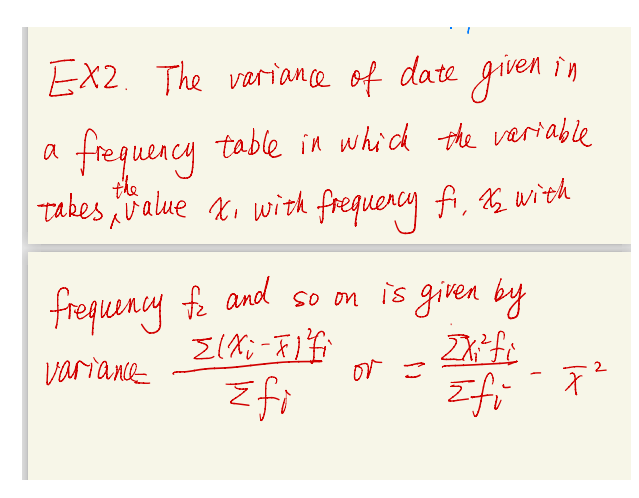 EX2. The variance of date given in
a frequency table in which the variable
takes the value x₁ with frequency f₁, x₂ with
frequency f₂ and so on is given by
variance Σ(xᵢ-x̄)²fᵢ / Σfᵢ or = Σxᵢ²fᵢ / Σfᵢ - x̄²